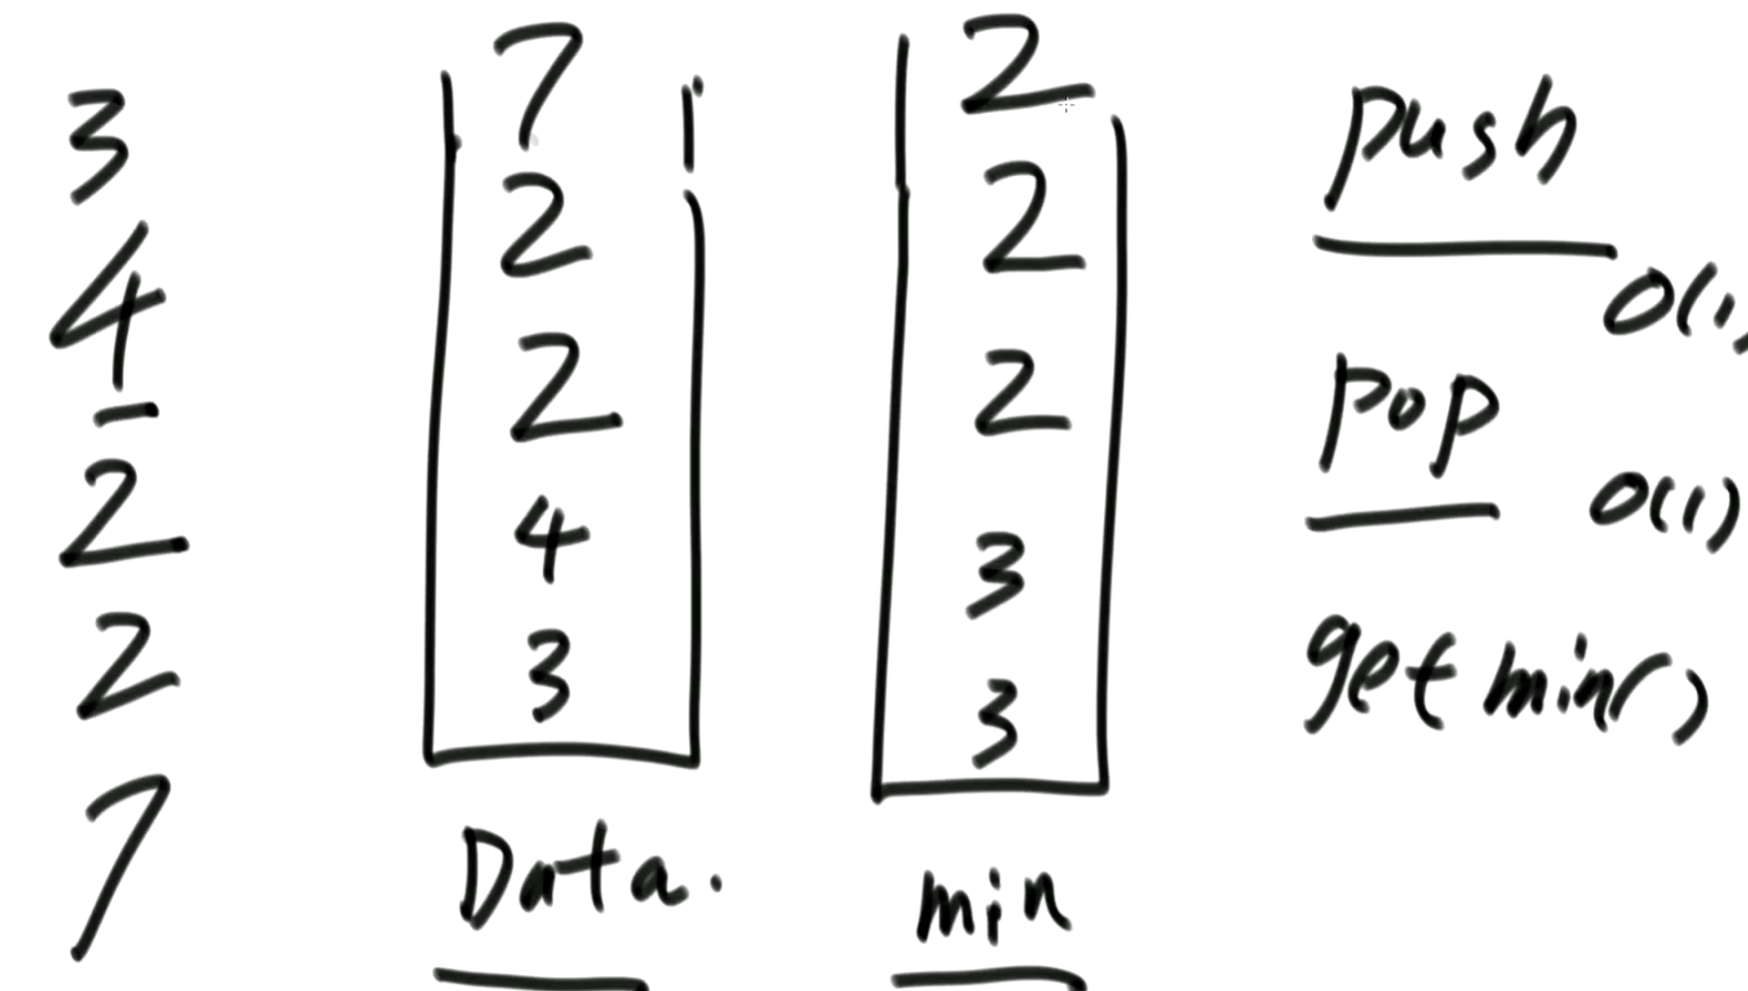 3
4
2
2
7
7
2
2
4
3
Data.
2
2
2
3
3
min
push
O(1)
pop
O(1)
getmin()